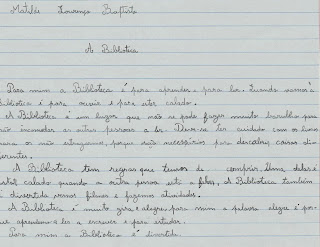 Matilde Lourenço Baptista
A Biblioteca
Para mim a Biblioteca é para aprender e para ler. Quando vamos à
Biblioteca é para ouvir e para estar calado.
A Biblioteca é um lugar que não se pode fazer muito barulho para
não incomodar as outras pessoas a ler. Deve-se ter cuidado com os livros
para os não estragarem, porque são necessários para descobrir coisas dif
erentes.
A Biblioteca tem regras que temos de cumprir. Uma, delas é
estar calado quando a outra pessoa está a falar. A Biblioteca também
é divertida vemos filmes e fazemos atividades.
A Biblioteca é muito gira e alegre para mim a palavra alegre é por-
que aprendemos a ler, a escrever e para estudar.
Para mim a Biblioteca é divertida.